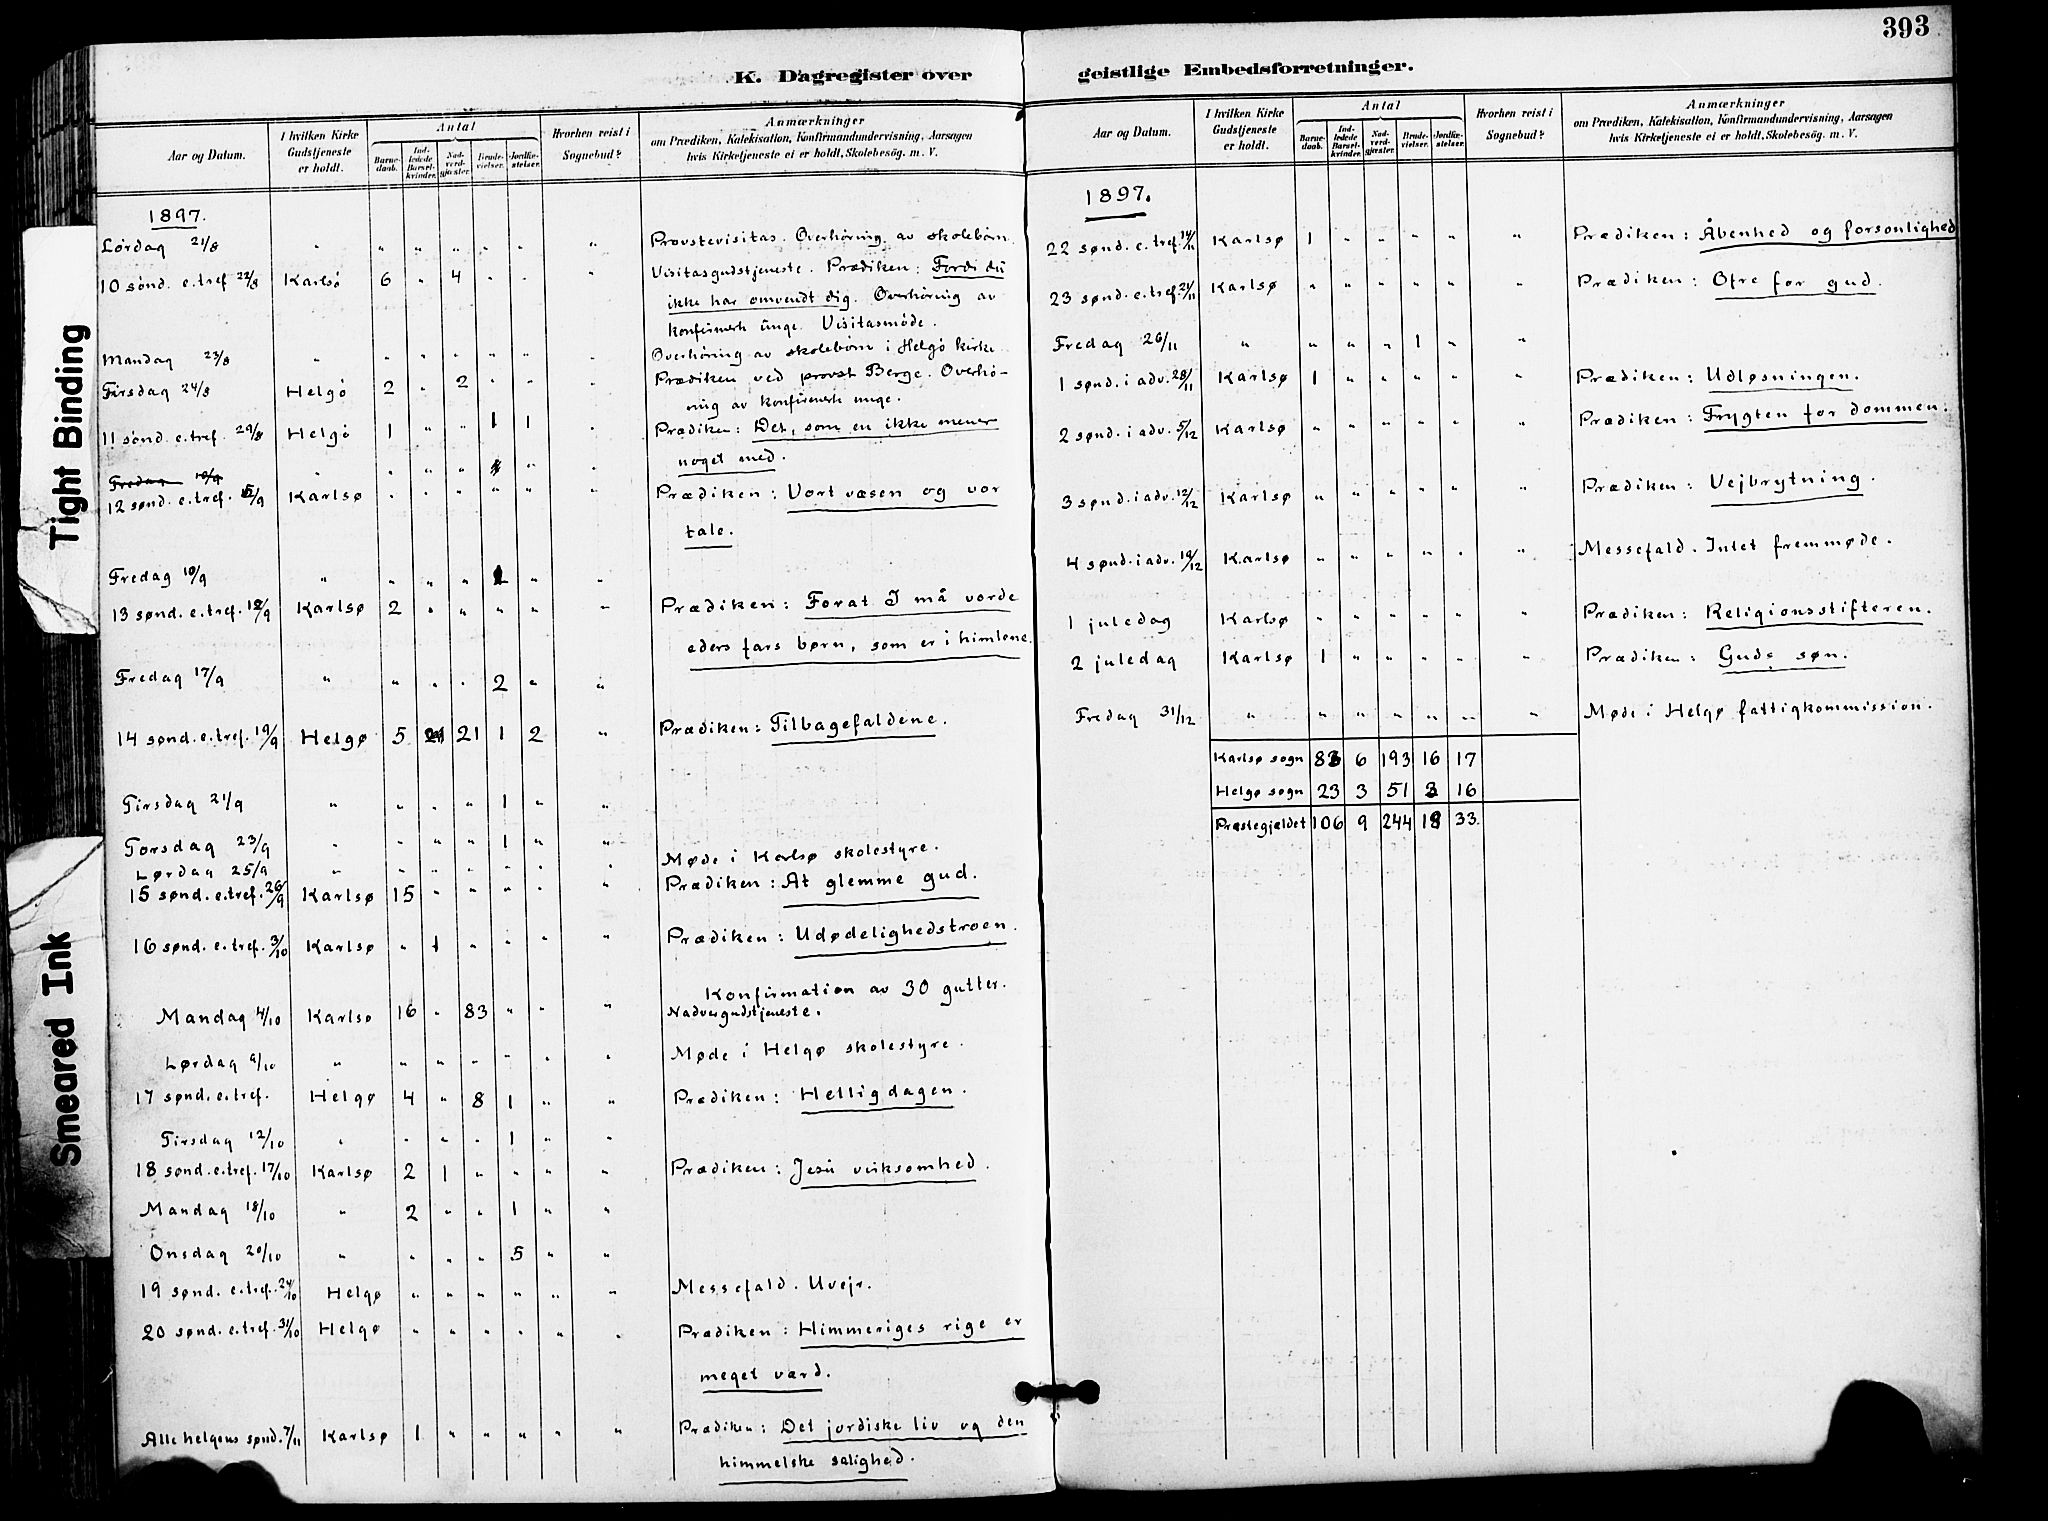 393
K. Dagregister over geistlige Embedsforretninger.
Tight Binding
Smeared Ink
Aar og Datum.
I hvilken Kirke Gudstjeneste er holdt.
Antal
Barne-daab.
Ind-ledede Barsel-kvinder.
Nad-verd-gjæster.
Brude-vielser.
Jordfæ-stelser.
Hvorhen reist i Sognebud?
Anmærkninger
om Prædiken, Katekisation, Konfirmandundervisning, Aarsagen
hvis Kirketjeneste ei er holdt, Skolebesög. m. V.
1897.
Lørdag 21/8 " " " " " " " Provstevisitas. Overhøring av skolebørn.
10 sønd. e. tref 22/8 Karlsø 6 " 4 " " " Visitasgudstjeneste. Prædiken: Fordi du
ikke har omvendt dig. Overhøring av
konfirmerte unge. Visitasmøde.
Mandag 23/8 " " " " " " " Overhøring av skolebørn i Helgø kirke
Tirsdag 24/8 Helgø 2 " 2 " " " Prædiken ved provst Berge. Overhø-
ring av konfirmerte unge.
11 sønd. e. tref. 29/8 Helgø 1 " " 1 1 " Prædiken: Det, som en ikke mener
noget med.
Fredag 10/9 " " " " " "
12 sønd. e. tref. 5/9 Karlsø " " " " " " Prædiken: Vort væsen og vor
tale.
Fredag 10/9 " " " " 1 " "
13 sønd. e. tref. 12/9 Karlsø 2 " " " " " Prædiken: Forat I må vorde
eders fars børn, som er i himlene.
Fredag 17/9 " " " " 2 " "
14 sønd. e. tref. 19/9 Helgø 5 21 1 2 " Prædiken: Tilbagefaldene.
Tirsdag 21/9 " " " " 1 " "
Torsdag 23/9 " " " " 1 " "
Lørdag 25/9 " " " " " " " Møde i Karlsø skolestyre.
15 sønd. e. tref. 26/9 Karlsø 15 " " " " " Prædiken: At glemme gud.
16 sønd. e. tref. 3/10 Karlsø " 1 " " " " Prædiken: Udødelighedstroen.
Konfirmation av 30 gutter.
Mandag 4/10 Karlsø 16 " 83 " " " Nadvergudstjeneste.
Lørdag 9/10 " " " " " " " Møde i Helgø skolestyre.
17 sønd. e. tref. Helgø 4 " 8 1 " " Prædiken: Helligdagen.
Tirsdag 12/10 " " " " 1 " "
18 sønd. e. tref. 17/10 Karlsø 2 1 " " " " Prædiken: Jesu virksomhed.
Mandag 18/10 " 2 " " 1 " "
Onsdag 20/10 " " " " 5 " "
19 sønd. e. tref. 24/10 Helgø " " " " " " Messefald. Uvejr.
20 sønd. e. tref. 31/10 Helgø " " " " " " Prædiken: Himmeriges rige er
meget værd.
Alle helgens sønd. 7/11 Karlsø 1 " " " " " Prædiken: Det jordiske liv og den
himmelske salighed.
Aar og Datum.
I hvilken Kirke Gudstjeneste er holdt.
Antal
Barne-daab.
Ind-ledede Barsel-kvinder.
Nad-verd-gjæster.
Brude-vielser.
Jordfæ-stelser.
Hvorhen reist i Sognebud?
Anmærkninger
om Prædiken, Katekisation, Konfirmandundervisning, Aarsagen
hvis Kirketjeneste ei er holdt, Skolebesög. m. V.
1897.
22 sønd. e. tref. 14/11 Karlsø 1 " " " " " Prædiken: Åbenhed og forsonlighed
23 sønd. e. tref. 21/11 Karlsø " " " " " " Prædiken: Ofre for gud.
Fredag 26/11 " " " " 1 " "
1 sønd. i adv. 28/11 Karlsø 1 " " " " " Prædiken: Udløsningen.
2 sønd. i adv. 5/12 Karlsø " " " " " " Prædiken: Frygten for dommen.
3 sønd. i adv. 12/12 Karlsø " " " " " " Prædiken: Vejbrytning.
4 sønd. i adv. 19/12 Karlsø " " " " " " Messefald. Intet fremmøde.
1 juledag Karlsø " " " " " " Prædiken: Religionsstifteren.
2 juledag Karlsø 1 " " " " " Prædiken: Guds søn.
Fredag 31/12 " " " " " " " Møde i Helgø fattigkommission.
Karlsø sogn 83 6 193 16 17
Helgø sogn 23 3 51 16
Præstegjældet 106 9 244 33.